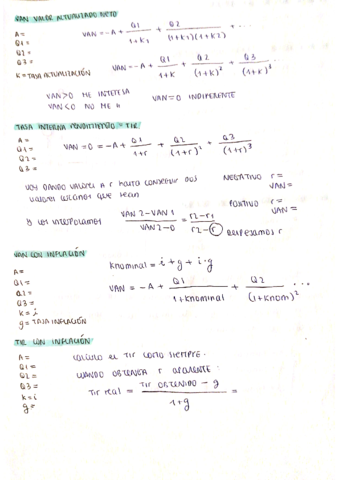 VAN VALOR ACTUALIZADO NETO
A=
Q1=
Q2=
Q3=
K= TASA ACTUALIZACIÓN
VAN = -A + Q1/(1+K1) + Q2/((1+K1)(1+K2)) + ...
VAN = -A + Q1/(1+K) + Q2/(1+K)² + Q3/(1+K)³ ...
VAN>0 ME INTERESA
VAN<0 NO ME II
VAN=0 INDIFERENTE
TASA INTERNA RENDIMIENTO = TIR
A=
Q1=
Q2=
Q3=
VAN = 0 = -A + Q1/(1+r) + Q2/(1+r)² + Q3/(1+r)³
VOY DANDO VALORES A r HASTA CONSEGUIR DOS
VALORES CERCANOS QUE SEAN
NEGATIVO r =
VAN =
POSITIVO r =
VAN =
Y LOS INTERPOLAMOS
(VAN 2 - VAN 1)/(VAN 2 - 0) = (r2 - r1)/(r2 - r)
DESPEJAMOS r
VAN CON INFLACIÓN
A=
Q1=
Q2=
Q3=
K= i
g= TASA INFLACIÓN
Knominal = i + g + i·g
VAN = -A + Q1/(1+Knominal) + Q2/(1+Knom)² ...
TIR CON INFLACIÓN
A=
Q1=
Q2=
Q3=
K=i
g=
CALCULO EL TIR COMO SIEMPRE.
CUANDO OBTENGA r APARENTE:
TIR real = (TIR OBTENIDO - g)/(1+g) =